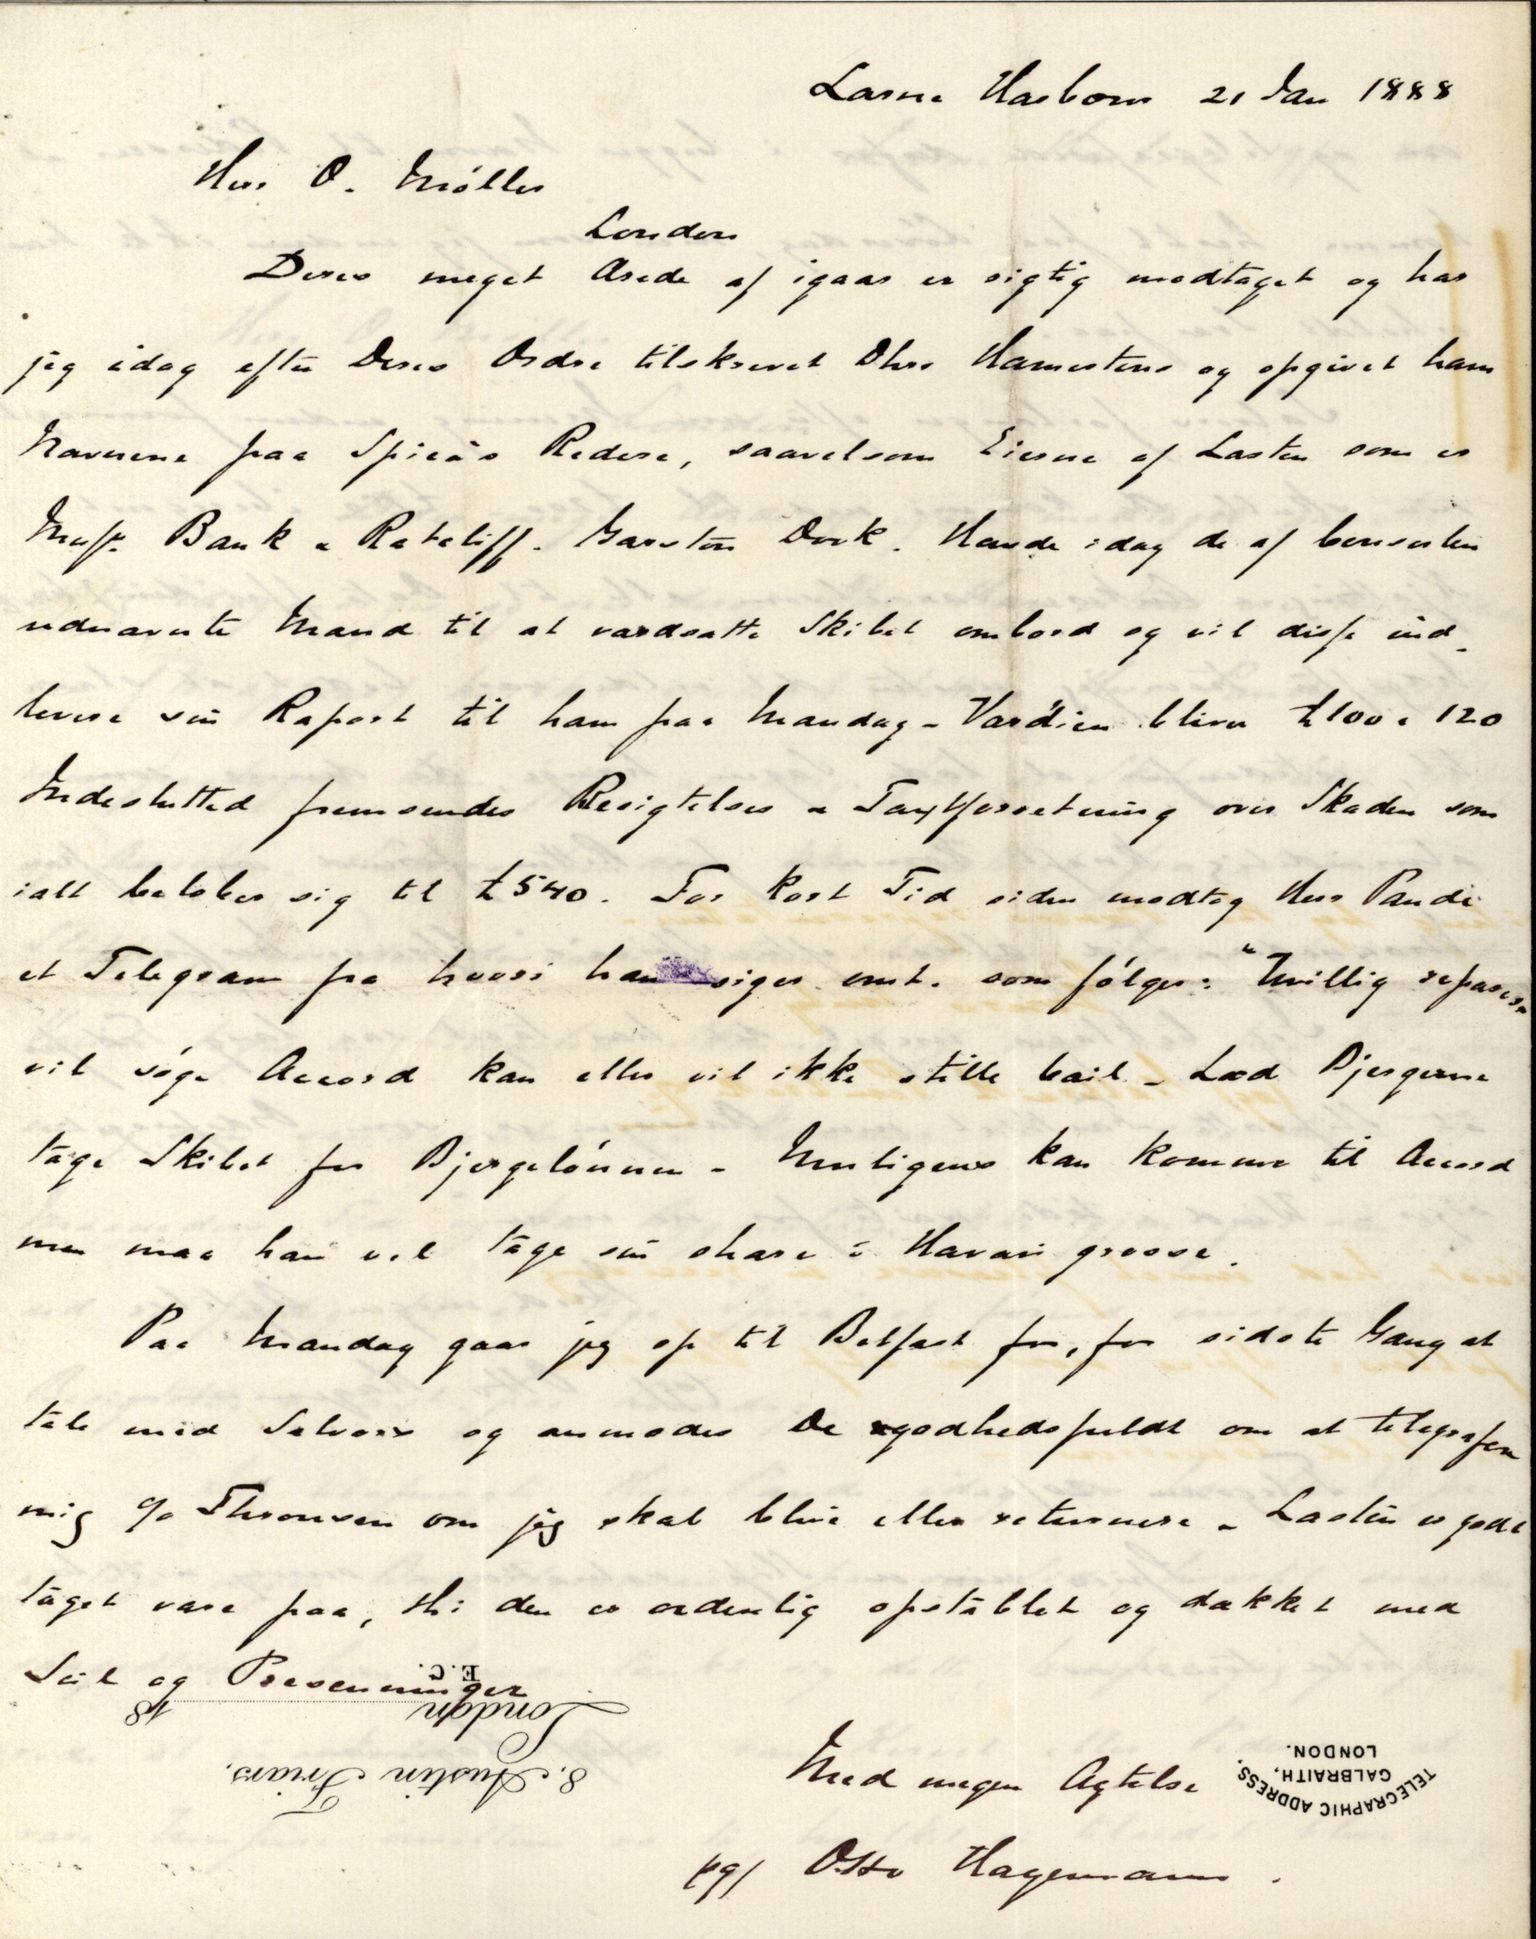 Larne Harbour 21 Jan 1888
Herr O. Møller
London
Deres meget Ærede af igaar er rigtig modtaget og har
jeg idag efter Deres Ordre tilskrevet Dhrr Harmestens og opgivet ham
Navnene paa Spica's Redere, saavelsom Eierne af Lasten som er
Messr. Bank & Ratcliff. Garston Dock. Havde idag de af Consulen
udnævnte Mænd til at værdsætte Skibet ombord og vil disse ind-
levere sin Raport til ham paa Mandag - Værdien bliver £100 a 120
Indeslutted fremsendes Besigtelses & Taxtforretning over Skaden som
ialt beløber sig til £540. For kort Tid siden modtog Herr Pande
et Telegram fra hvori han siger omt. som følger: "Uvillig reparere
vil søge Accord kan eller vil ikke stille bail - Lad Bjergerne
tage Skibet for Bjergelønnen - Muligens kan komme til Accord
men maa han vel tage sin share i Havari grosse.
Paa Mandag gaar jeg op til Belfast for, for sidste Gang at
tale med Salvors og anmodes De godhedsfuldt om at telegrafere
mig c/o Thronsen om jeg skal blive eller returnere - Lasten er godt
taget vare paa, thi den er ordentlig opstablet og dækket med
Seil og Presenninger
8, Austin Friars,
London 18
E.C.
Med megen Agtelse
TELEGRAPHIC ADDRESS,
GALBRAITH,
LONDON.
pq/ Otto Hagemann.